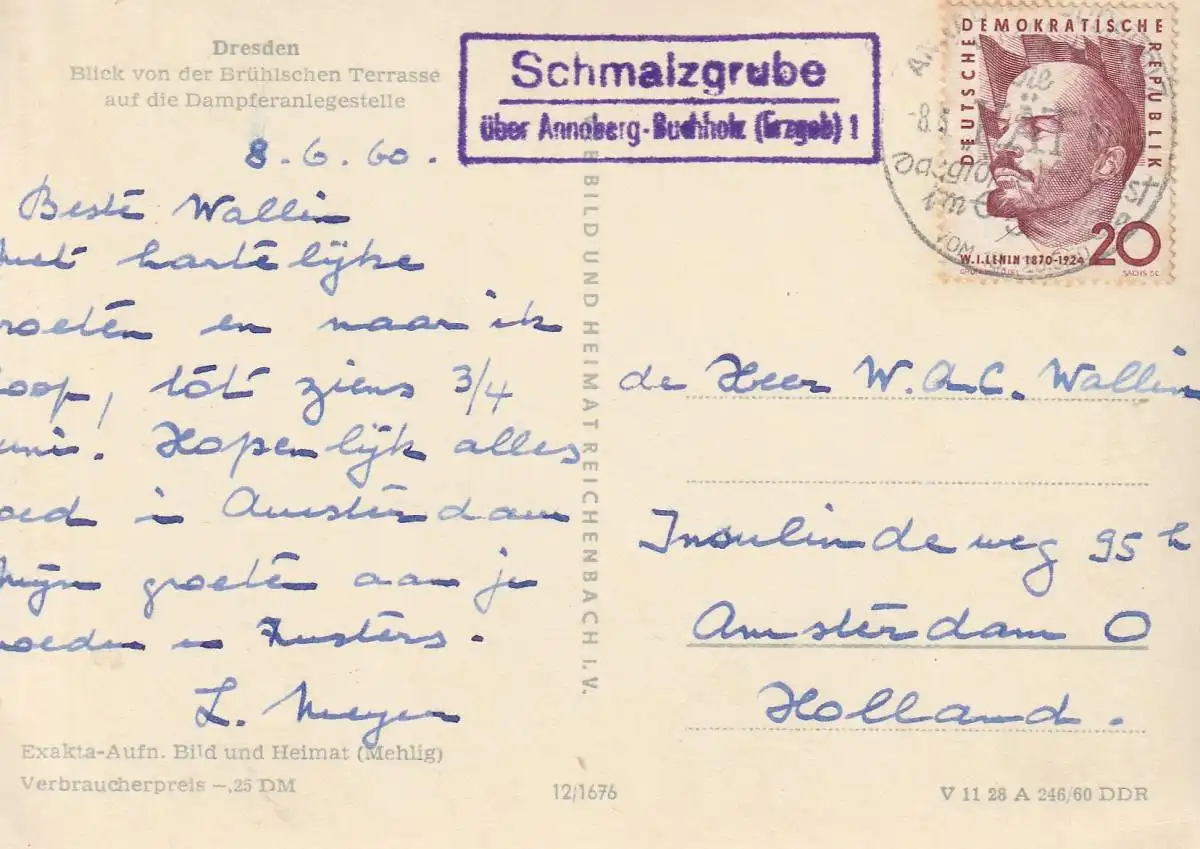 Dresden
Blick von der Brühlschen Terrasse
auf die Dampferanlegestelle
Schmalzgrube
über Annaberg-Buchholz (Erzgeb) 1
DEUTSCHE DEMOKRATISCHE REPUBLIK
W.I.LENIN 1870-1924
20
8.6.60.
Beste Wallin
hartelijke
roeten en naar ik
oop, tot ziens 3/4
uni. Hopenlijk alles
oed in Amsterdam
Mijn groeten aan je
oeder en Zusters.
L. Meyer
BILD UND HEIMAT REICHENBACH I. V.
de Heer W.A.C. Wallin
Insulinde weg 95 h
Amsterdam O
Holland.
Exakta-Aufn. Bild und Heimat (Mehlig)
Verbraucherpreis -,25 DM
12/1676
V 11 28 A 246/60 DDR